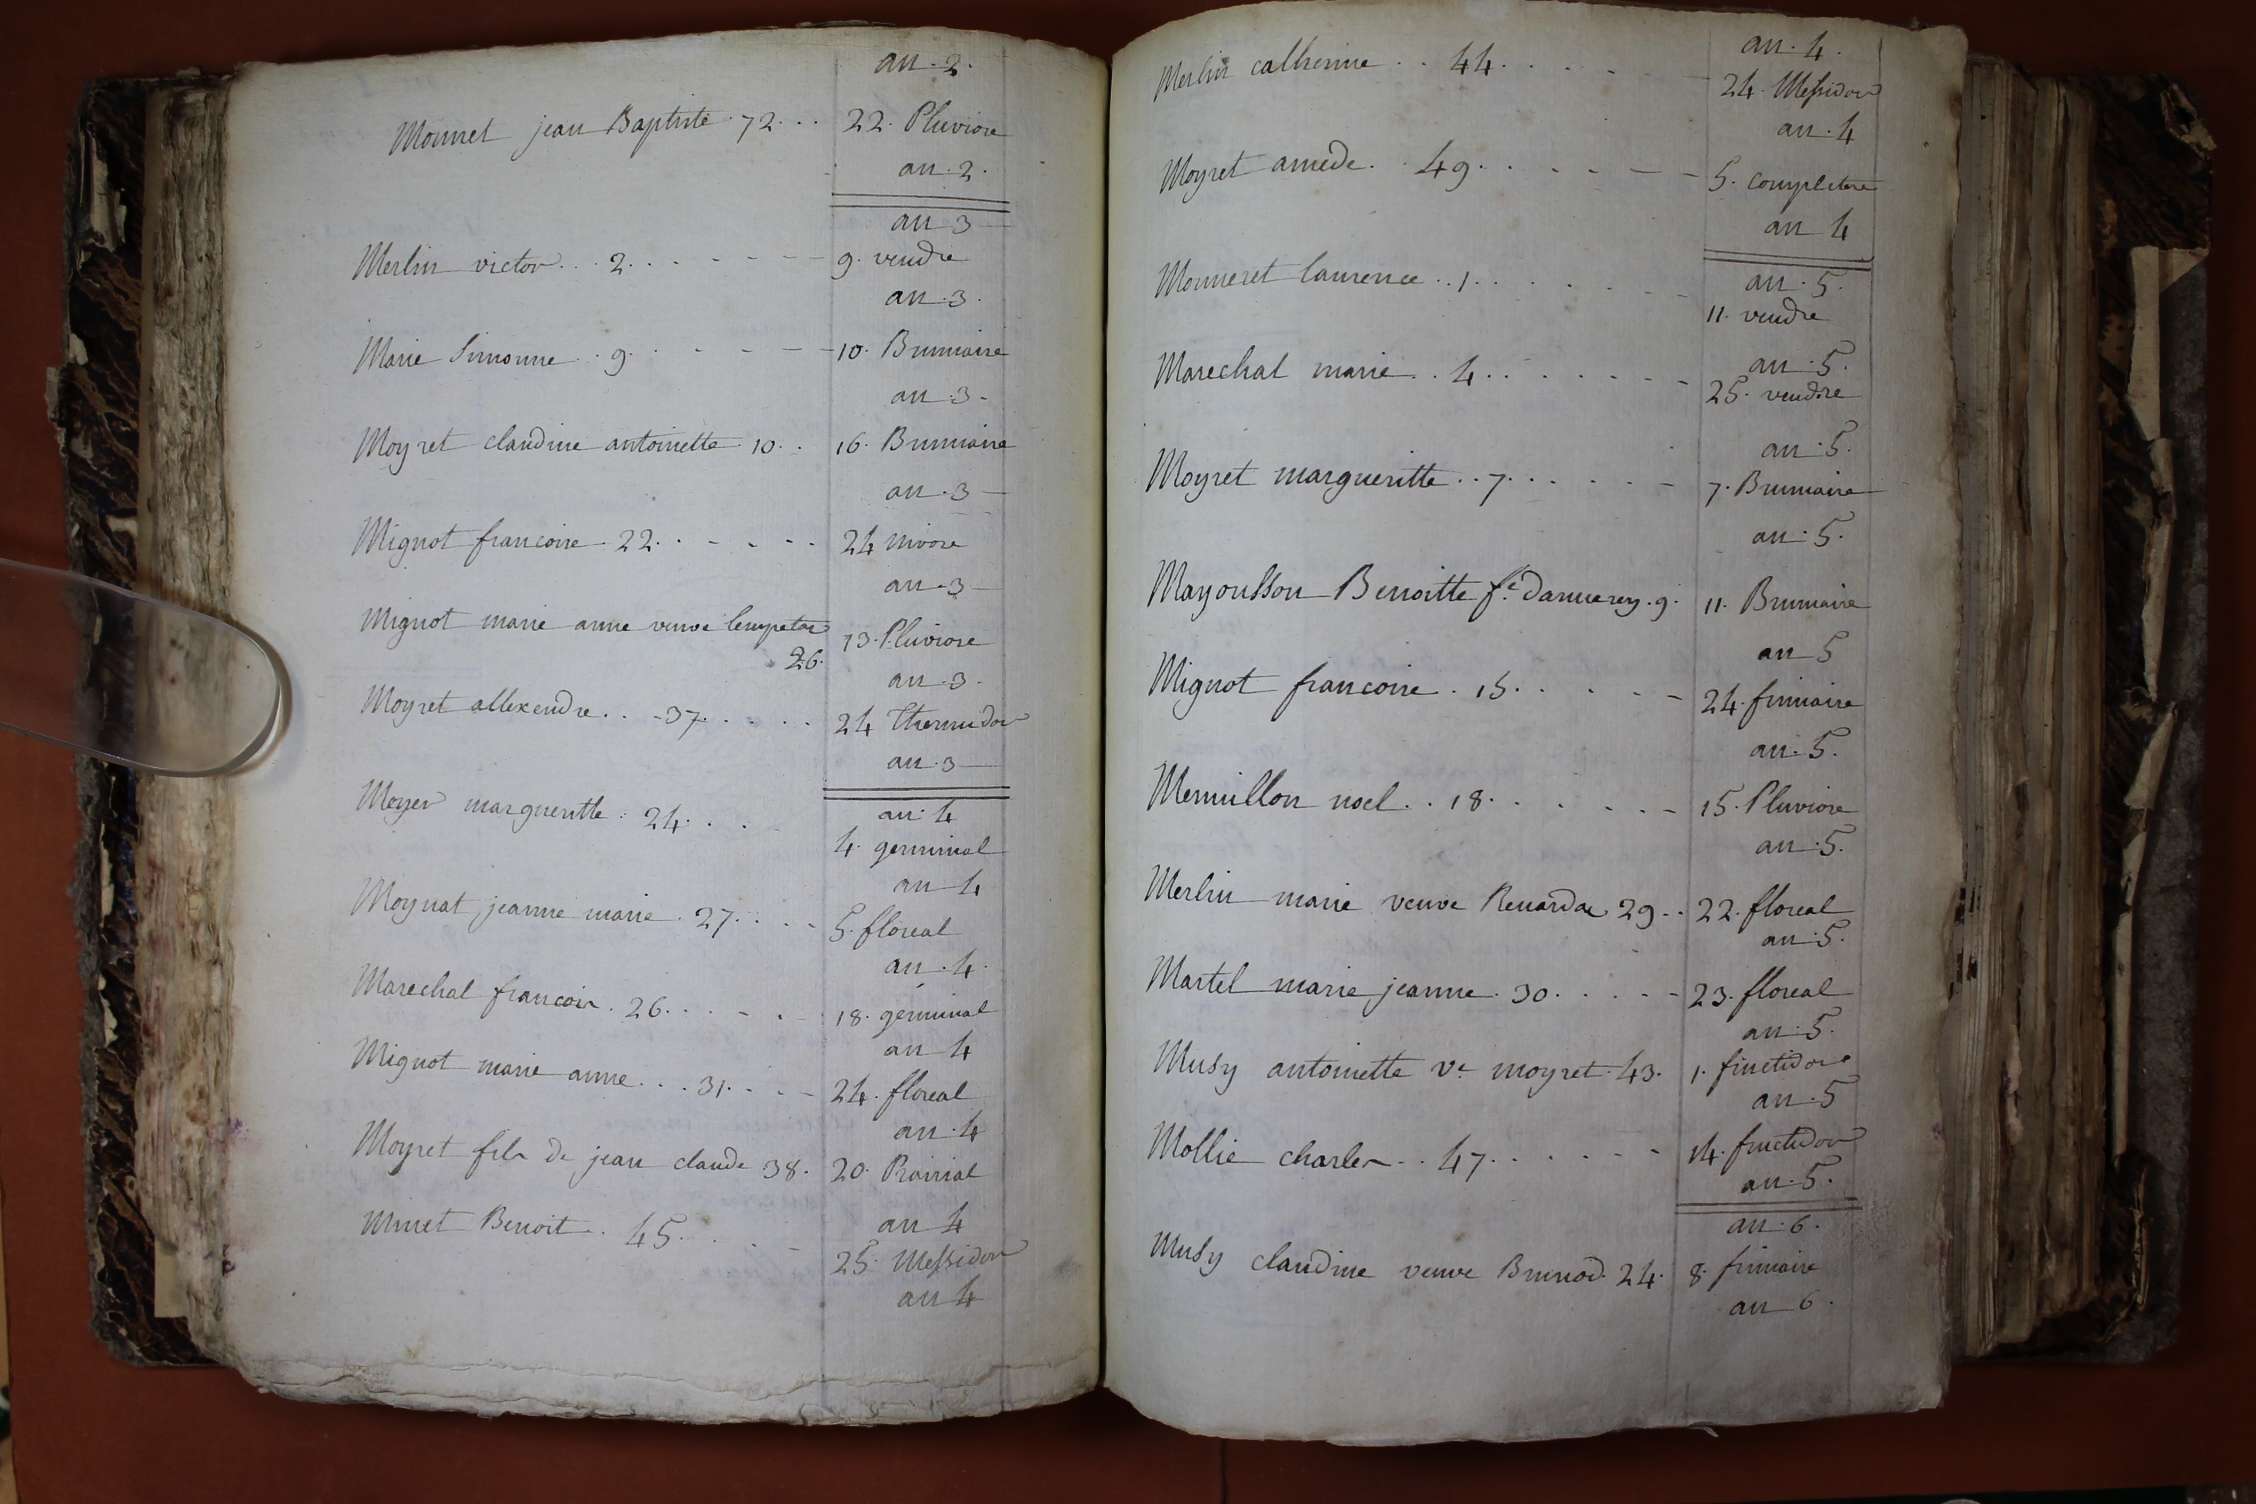 an . 2 .
Monnet jean Baptiste . 72 . . . 22 . Pluviose
an . 2 .
an 3
Merlin victor . . . 2 . . . . . . . 9 . vendre
an . 3 .
Marie Simonne . . 9 . . . . . 10 . Brumaire
an . 3 .
Moyret claudine antoinette 10 . . 16 . Brumaire
an . 3
Mignot francoise . 22 . . . . . . 24 nivose
an . 3
Mignot marie anne veuve
13 . Pluviose
26 .
an . 3 .
Moyret allexendre . . . 37 . . . . . 24 Thermidor
an . 3
an . 4
Moyer margueritte . 24 . . .
4 . germinal
an 4
Moynat jeanne marie . 27 . . . . 5 . floreal
an . 4 .
Marechal francois . 26 . . . . . 18 . germinal
an 4
Mignot marie anne . . . 31 . . . . 24 . floreal
an . 4
Moyret fils de jean claude 38 . 20 . Prairial
an 4
Minet Benoit . 45 . . . .
25 . Messidor
an 4
an . 4 .
Merlin catherine . . 44 . . . . . 24 . Messidor
an . 4
Moyret amede . . 49 . . . . . . 5 . complitere
an 4
an . 5 .
Monneret laurence . . 1 . . . . . . .
11 . vendre
an . 5 .
Marechal marie . . 4 . . . . . . . 25 . vendre
an . 5 .
Moyret margueritte . . 7 . . . . . . 7 . Brumaire
an . 5 .
Mayousson Benoitte fe. . 9 . 11 . Brumaire
an 5
Mignot francoise . 15 . . . . . 24 . frimaire
an . 5 .
Mermillon noel . . 18 . . . . . . . 15 . Pluviose
an . 5 .
Merlin marie veuve 29 . . 22 . floreal
an . 5 .
Martel marie jeanne . 30 . . . . . 23 . floreal
an . 5 .
Musy antoinette ve. moyret . 43 . 1 . fructidor
an . 5
Mollie charles . . 47 . . . . . . 14 . fructidor
an . 5 .
an . 6 .
Musy claudine veuve Brunod . 24 . 8 . frimaire
an 6 .